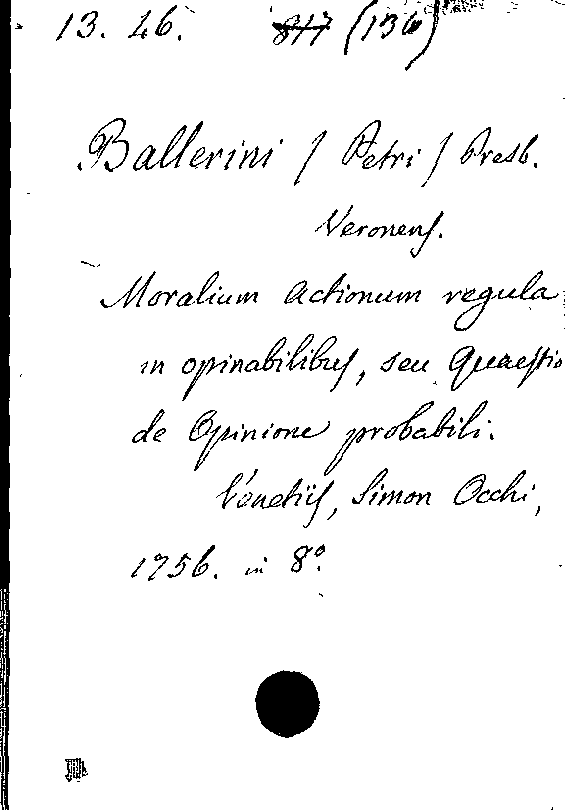 13. 26. 817 (136)
Ballerini / Petri / Presb.
Veronens.
Moralium actionum regula
in opinabilibus, seu Quaestio
de Opinione probabili.
Venetiis, Simon Occhi,
1756. in 8º.